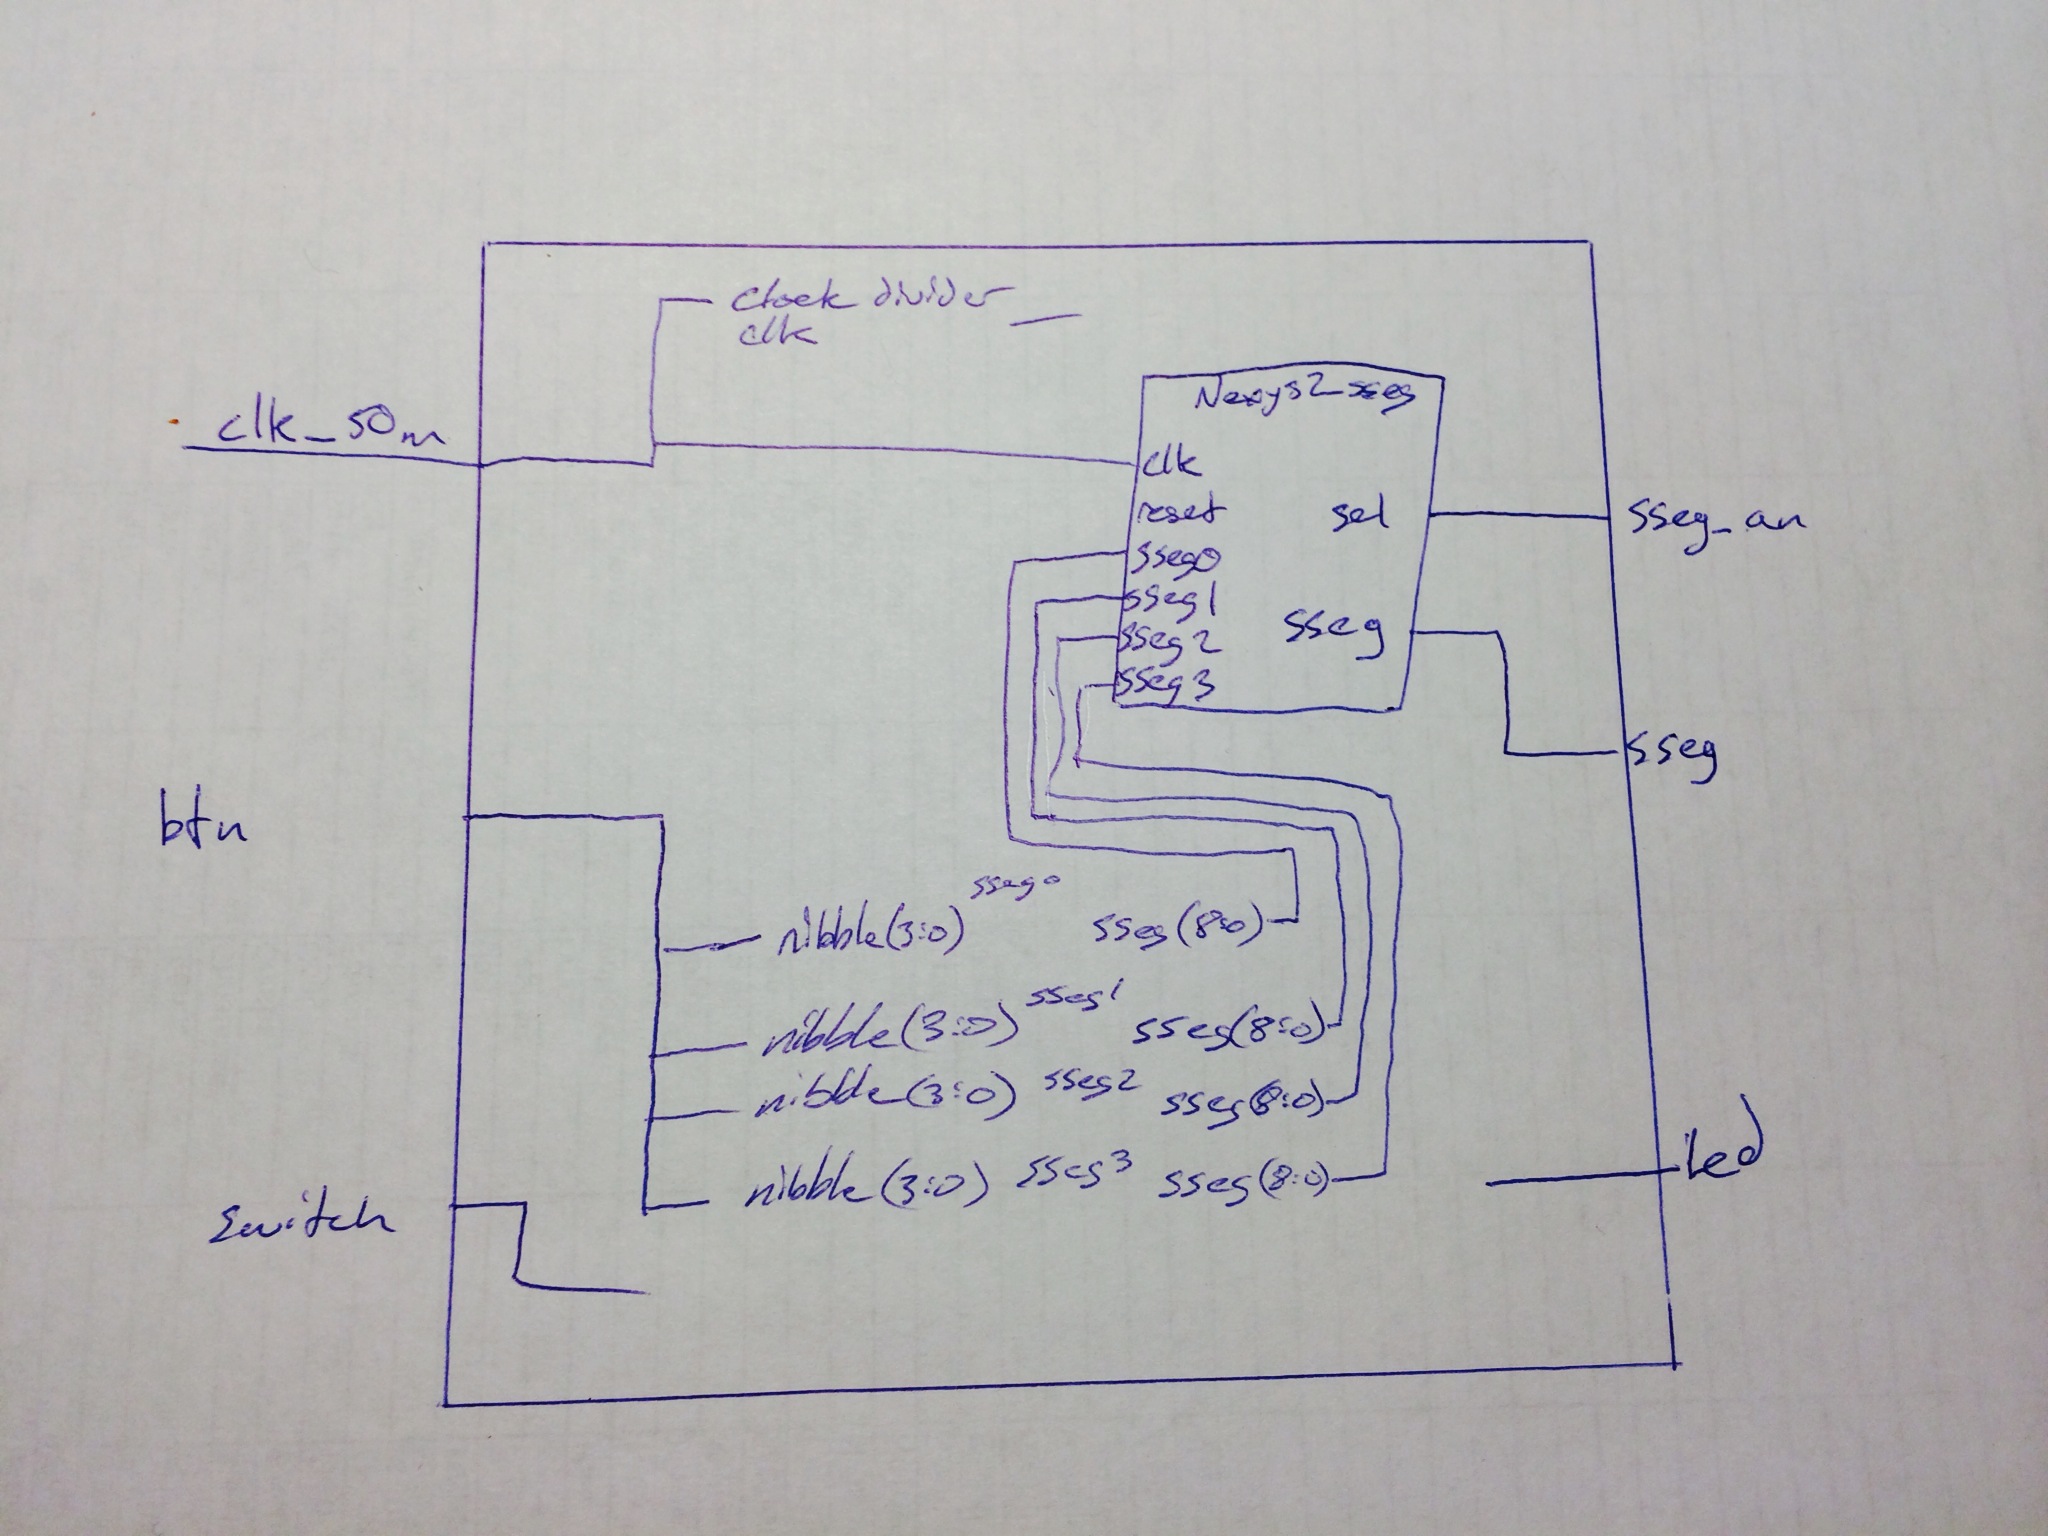 clock divider
clk
clk_50m
Nexys2_sseg
clk
reset
sel
sseg_an
sseg0
sseg1
sseg2
sseg
sseg3
sseg
btn
nibble(3:0) sseg0 sseg(8:0)
nibble(3:0) sseg1 sseg(8:0)
nibble(3:0) sseg2 sseg(8:0)
nibble(3:0) sseg3 sseg(8:0)
led
switch